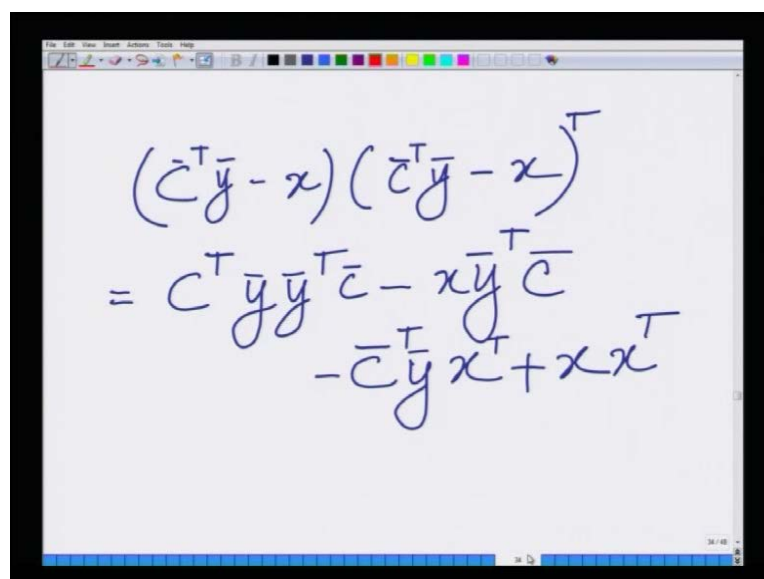 File Edit View Insert Actions Tools Help
B I
(c̄ᵀȳ - x)(c̄ᵀȳ - x)ᵀ
= Cᵀȳȳᵀc̄ - xȳᵀc̄
- c̄ᵀȳxᵀ + xxᵀ
34 / 48
34